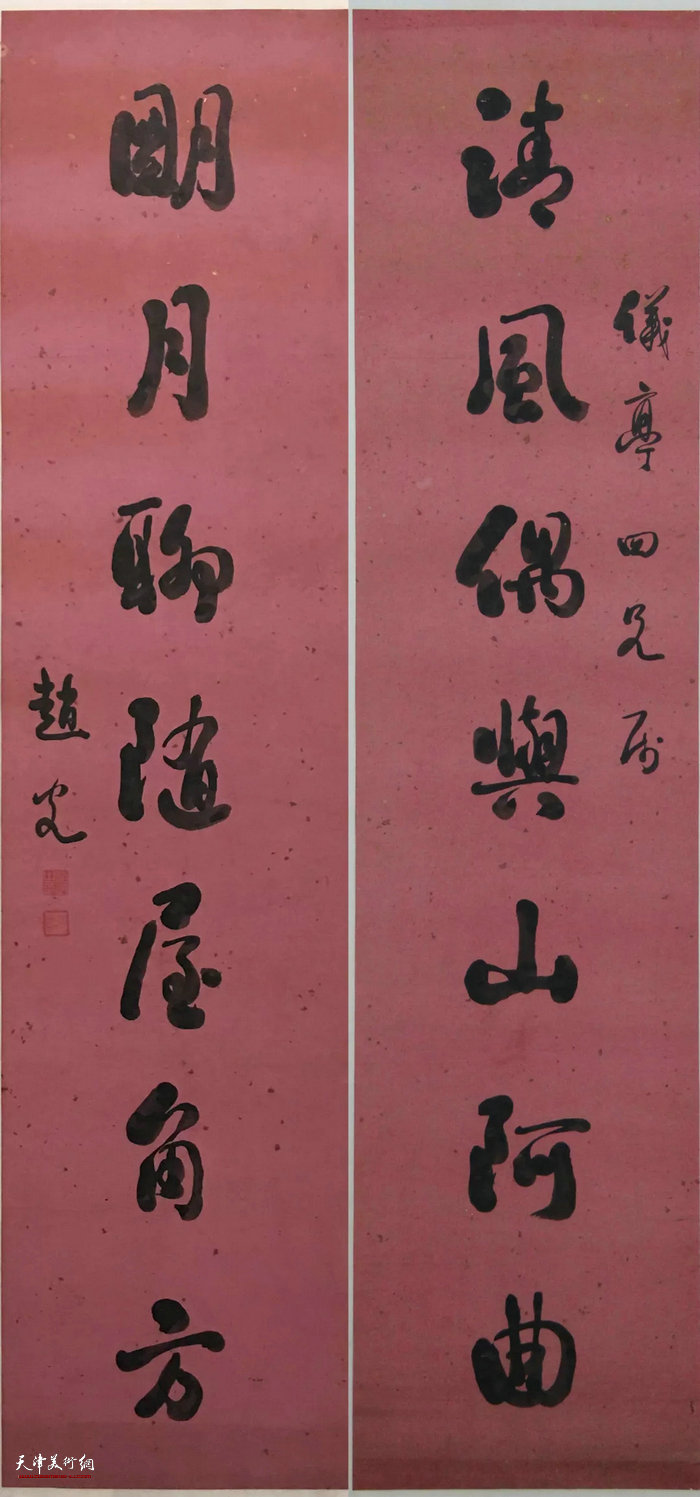 儀亭四兄属
清風偶與山阿曲
明月聊随屋角方
趙光
天津美術網